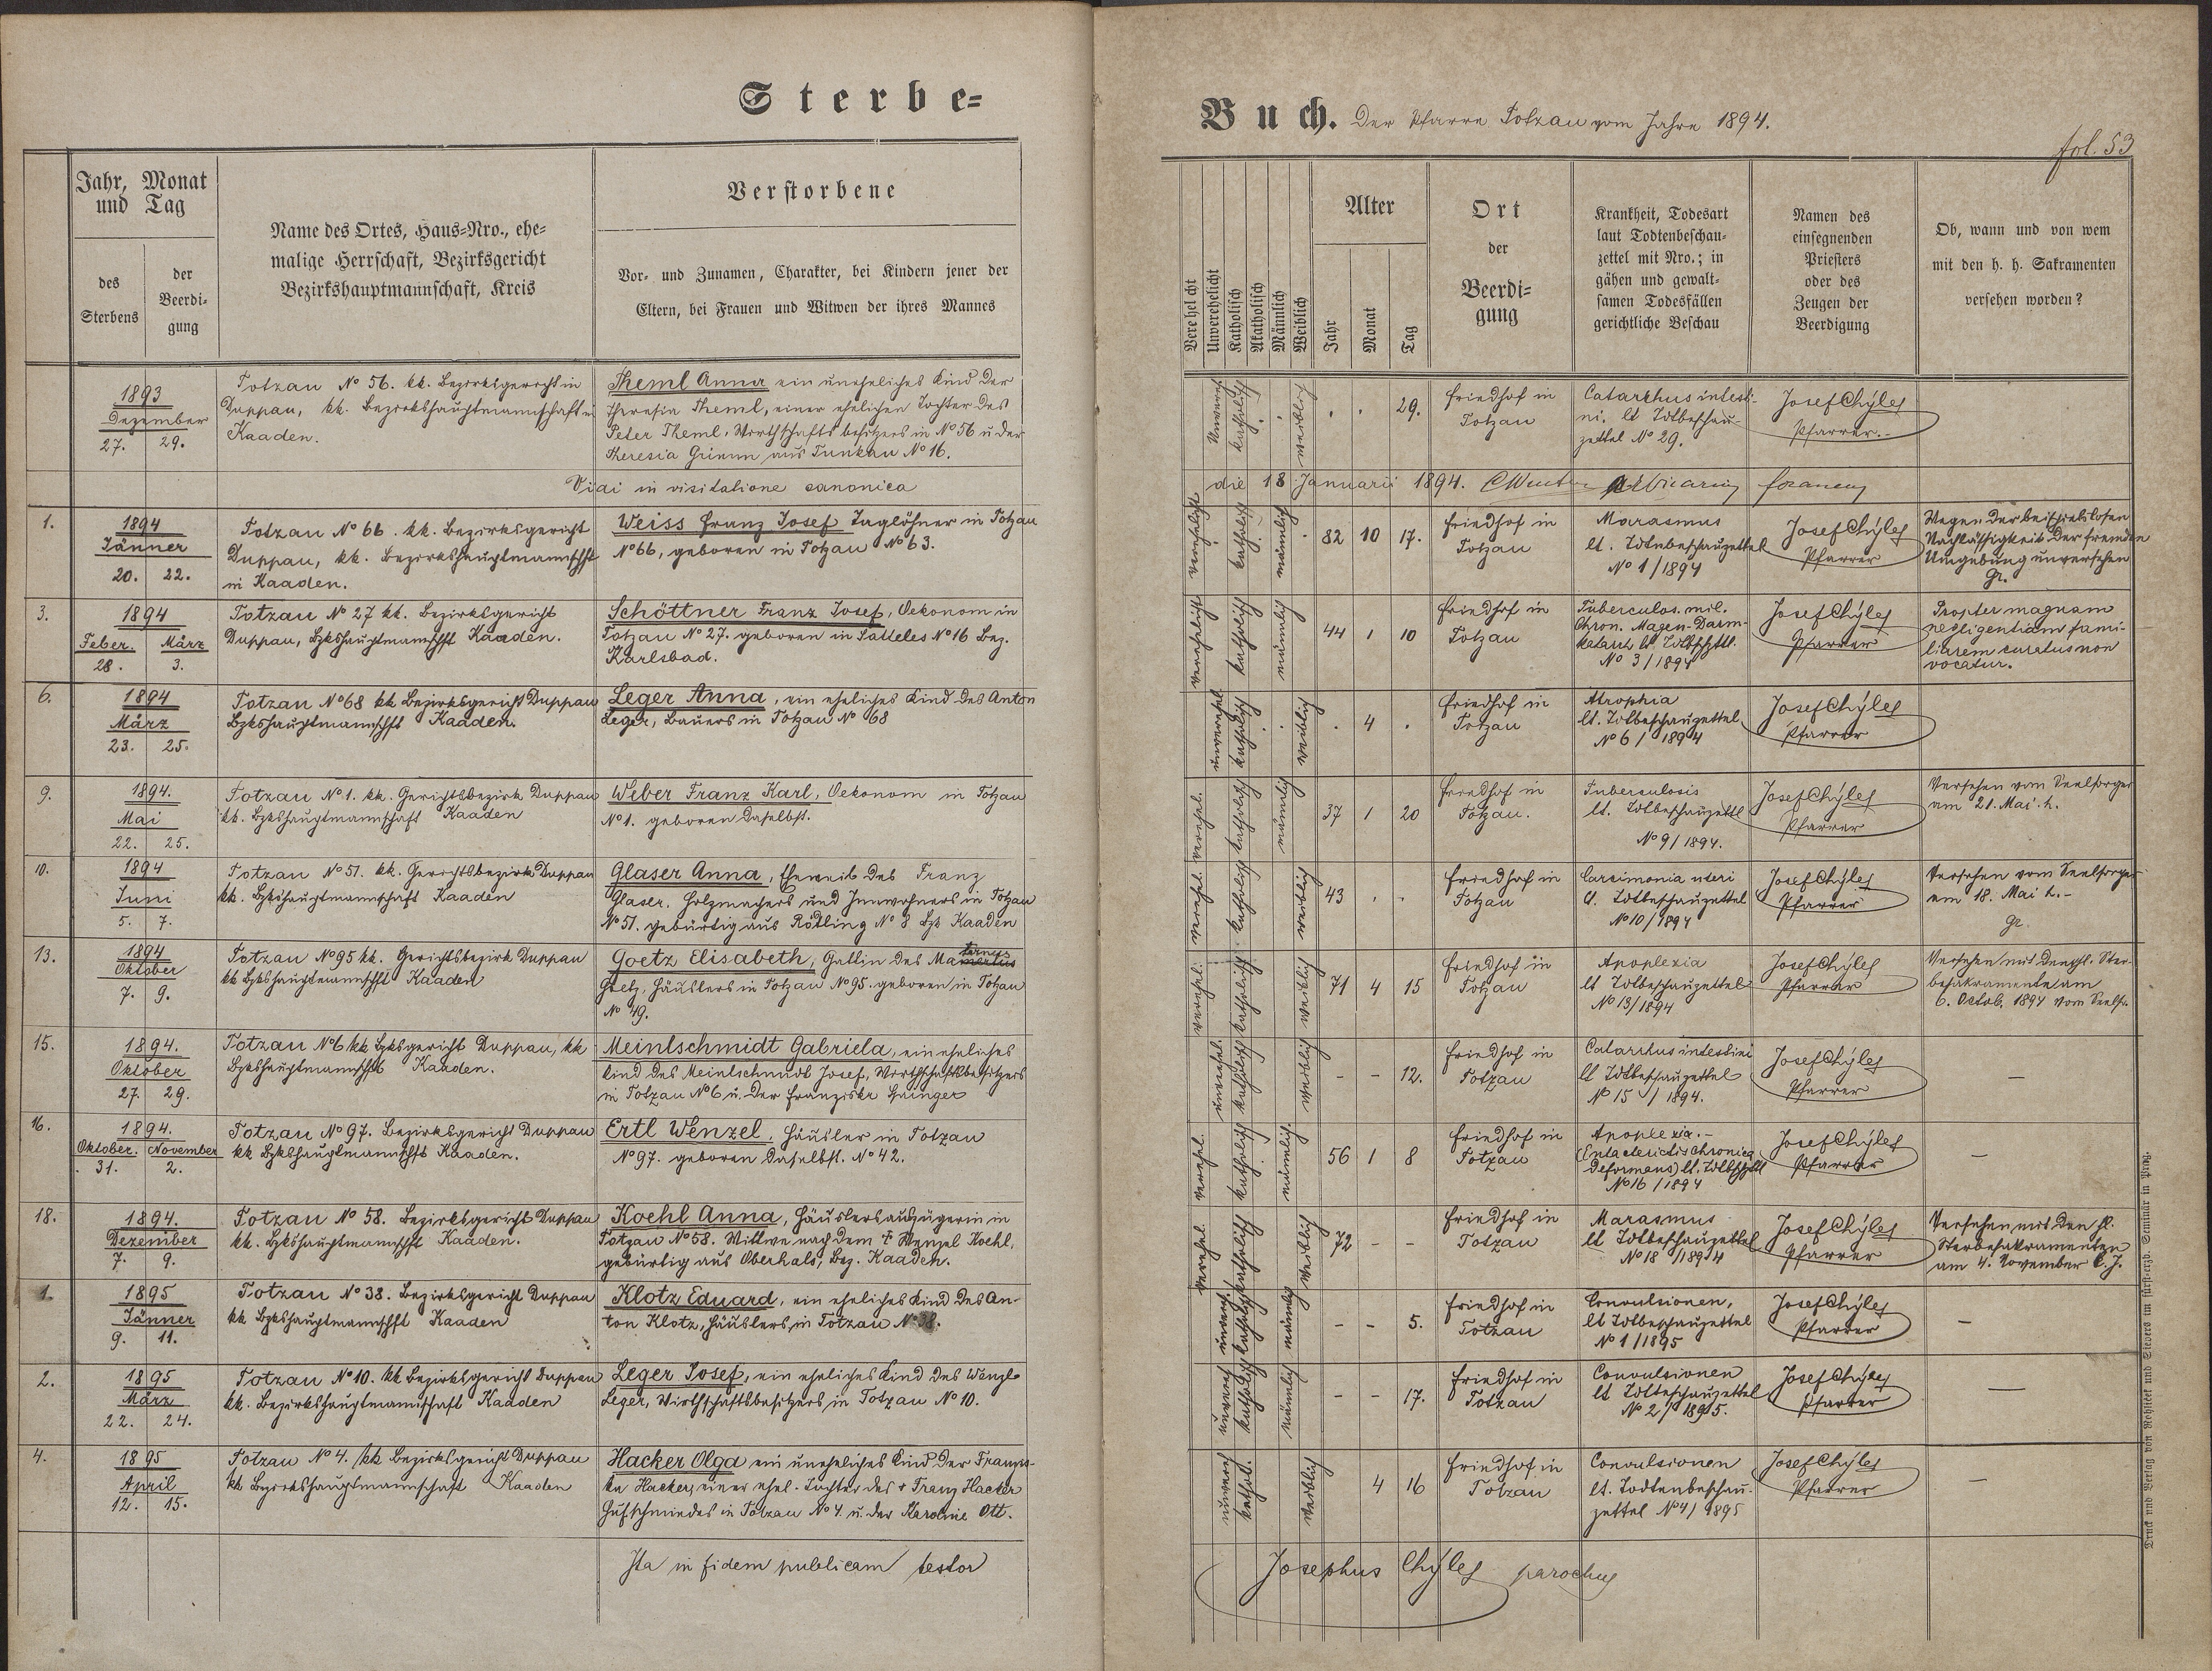 Sterbe=
Jahr, Monat
und Tag
des
Sterbens
der
Beerdi-
gung
Name des Ortes, Haus-Nro., ehe-
malige Herrschaft, Bezirksgericht
Bezirkshauptmannschaft, Kreis
Verstorbene
Vor- und Zunamen, Charakter, bei Kindern jener der
Eltern, bei Frauen und Witwen der ihres Mannes
1893
Dezember
27. 29.
Totzau No 56. kk. Bezirksgericht in
Duppau, kk. Bezirkshauptmannschaft in
Kaaden.
Theml Anna ein uneheliches Kind der
Theresia Theml, einer ehelichen Tochter des
Peter Theml, Wirthschaftsbesitzers in No 56 u der
Theresia Grimm aus Tunkau No 16.
Vidi in visitatione canonica
1.
1894
Jänner
20. 22.
Totzau No 66. kk. Bezirksgericht
Duppau, kk. Bezirkshauptmannschft
in Kaaden.
Weiss Franz Josef Taglöhner in Totzau
No 66, geboren in Totzau No 63.
3.
1894
Feber. März
28. 3.
Totzau No 27 kk. Bezirksgericht
Duppau, Bzkshauptmannschft Kaaden.
Schöttner Franz Josef, Oekonom in
Totzau No 27. geboren in Satteles No 16 Bez.
Karlsbad.
6.
1894
März
23. 25.
Totzau No 68 kk Bezirksgericht Duppau
Bzkshauptmannschft Kaaden.
Leger Anna, ein eheliches Kind des Anton
Leger, Bauers in Totzau No 68
9.
1894.
Mai
22. 25.
Totzau No 1. kk. Gerichtsbezirk Duppau
kk. Bzkshauptmannschaft Kaaden
Weber Franz Karl, Oekonom in Totzau
No 1. geboren daselbst.
10.
1894
Juni
5. 7.
Totzau No 51. kk. Gerichtsbezirk Duppau
kk. Bzkshauptmannschaft Kaaden
Glaser Anna, Eheweib des Franz
Glaser, Holzmachers und Innwohners in Totzau
No 51. gebürtig aus Rödling No 8 Bzk Kaaden
13.
1894
Oktober
7. 9.
Totzau No 95 kk. Gerichtsbezirk Duppau
kk Bzkshauptmannschft Kaaden
Goetz Elisabeth, Gattin des Mamertus
Goetz, Häuslers in Totzau No 95. geboren in Totzau
No 49.
15.
1894.
Oktober
27. 29.
Totzau No 6 kk Bzksgericht Duppau, kk
Bzkshauptmannschft Kaaden.
Meintschmidt Gabriela, ein eheliches
Kind des Meintschmidt Josef, Wirthschaftsbesitzers
in Totzau No 6 u. der Franziska
16.
1894.
Oktober. November
31. 2.
Totzau No 97. Bezirksgericht Duppau
kk Bzkshauptmannschft Kaaden.
Ertl Wenzel, Häusler in Totzau
No 97. geboren daselbst. No 42.
18.
1894.
Dezember
7. 9.
Totzau No 58. Bezirksgericht Duppau
kk. Bzkshauptmannschft Kaaden.
Koehl Anna, Häuslersauszügerin in
Totzau No 58. Wittwe nach dem † Wenzel Koehl,
gebürtig aus Oberhals, Bez. Kaaden.
1.
1895
Jänner
9. 11.
Totzau No 38. Bezirksgericht Duppau
kk Bzkshauptmannschft Kaaden
Klotz Eduard, ein eheliches Kind des An-
ton Klotz, Häuslers in Totzau No 38.
2.
1895
März
22. 24.
Totzau No 10. kk Bezirksgericht Duppau
kk. Bezirkshauptmannschaft Kaaden
Leger Josef, ein eheliches Kind des Wenzl
Leger, Wirthschaftsbesitzers in Totzau No 10.
4.
1895
April
12. 15.
Totzau No 4. kk Bezirksgericht Duppau
kk Bezirkshauptmannschaft Kaaden
Hacker Olga ein uneheliches Kind der Franzis-
ka Hacker, einer ehel. Tochter des † Franz Hacker
Hufschmiedes in Totzau No 4. u. der Karoline Ott.
Ita in fidem publicam testor
Buch. Der Pfarre Totzau vom Jahre 1894.
fol. 53
Verehelicht
Unverehelicht
Katholisch
Akatholisch
Männlich
Weiblich
Alter
Jahr
Monat
Tag
Ort
der
Beerdi-
gung
Krankheit, Todesart
laut Todtenbeschau-
zettel mit Nro.; in
gähen und gewalt-
samen Todesfällen
gerichtliche Beschau
Namen des
einsegnenden
Priesters
oder des
Zeugen der
Beerdigung
Ob, wann und von wem
mit den h. h. Sakramenten
versehen worden?
Unvereh katholisch weiblich . . 29.
Friedhof in
Totzau
Catarrhus intesti-
ni. lt Tdtbeschau-
zettel No 29.
Josef Chyleş
Pfarrer.-
die 18 Januarii 1894.
verehelicht katholisch männlich 82 10 17.
Friedhof in
Totzau
Marasmus
lt. Tdtnbeschauzettel
No 1/1894
Josef Chyleş
Pfarrer
Wegen der beispiellosen
Nachlässigkeit der fremden
Umgebung unversehen
verehelicht katholisch männlich 44 1 10
Friedhof in
Totzau
Tuberculos. mil.
Chron. Magen-Darm-
katarrh lt. Tdtbschzttl.
No 3/1894
Josef Chyleş
Pfarrer
Propter magnam
negligentiam fami-
liarem curatus non
vocatur.
unverehel katholisch weiblich . 4 .
Friedhof in
Totzau
Atrophia
lt. Tdtbeschauzettel
No 6/1894
Josef Chyleş
Pfarrer
verehel. katholisch männlich 37 1 20
Friedhof in
Totzau.
Tuberculosis
lt. Tdtbeschauzettl
No 9/1894.
Josef Chyleş
Pfarrer
Versehen vom Seelsorger
am 21. Mai. h.
verehel. katholisch weiblich 43 . .
Friedhof in
Totzau
Carcimonia uteri
lt. Tdtbeschauzettel
No 10/1894
Josef Chyleş
Pfarrer
Versehen vom Seelsorger
am 18. Mai h.-
verehel. katholisch weiblich 71 4 15
Friedhof in
Totzau
Apoplexia
lt Tdtbeschauzettel
No 13/1894
Josef Chyleş
Pfarrer
Versehen mit den hl. Ster-
besakramente am
6. Octob. 1894 vom Seels.
unverehel. katholisch weiblich - - 12.
Friedhof in
Totzau
Catarrhus intestini
lt Tdtbeschauzettel
No 15/1894.
Josef Chyleş
Pfarrer
—
verehel. katholisch männlich. 56 1 8
Friedhof in
Totzau
Apoplexia.-
chronica
deformans) lt.
No 16/1894
Josef Chyleş
Pfarrer
—
verehel. katholisch weiblich 72 - -
Friedhof in
Totzau
Marasmus
lt Tdtbeschauzettel
No 18/1894
Josef Chyleş
Pfarrer
Versehen mit den hl.
Sterbesakramenten
am 4. November l. J.
unvereh. katholisch männlich - - 5.
Friedhof in
Totzau
Convulsionen,
lt Tdtbeschauzettel
No 1/1895
Josef Chyleş
Pfarrer
—
unvereh katholisch männlich - - 17.
Friedhof in
Totzau
Convulsionen
lt Tdtbeschauzettel
No 2/1895.
Josef Chyleş
Pfarrer
—
unvereh kathol. weiblich 4 16
Friedhof in
Totzau
Convulsionen
lt. Todtenbeschau-
zettel No 4/1895
Josef Chyleş
Pfarrer
—
Josephus Chyleş parochus
Druck und Verlag von Rohliček und Sievers im fürst-erzb. Seminär in Prag.